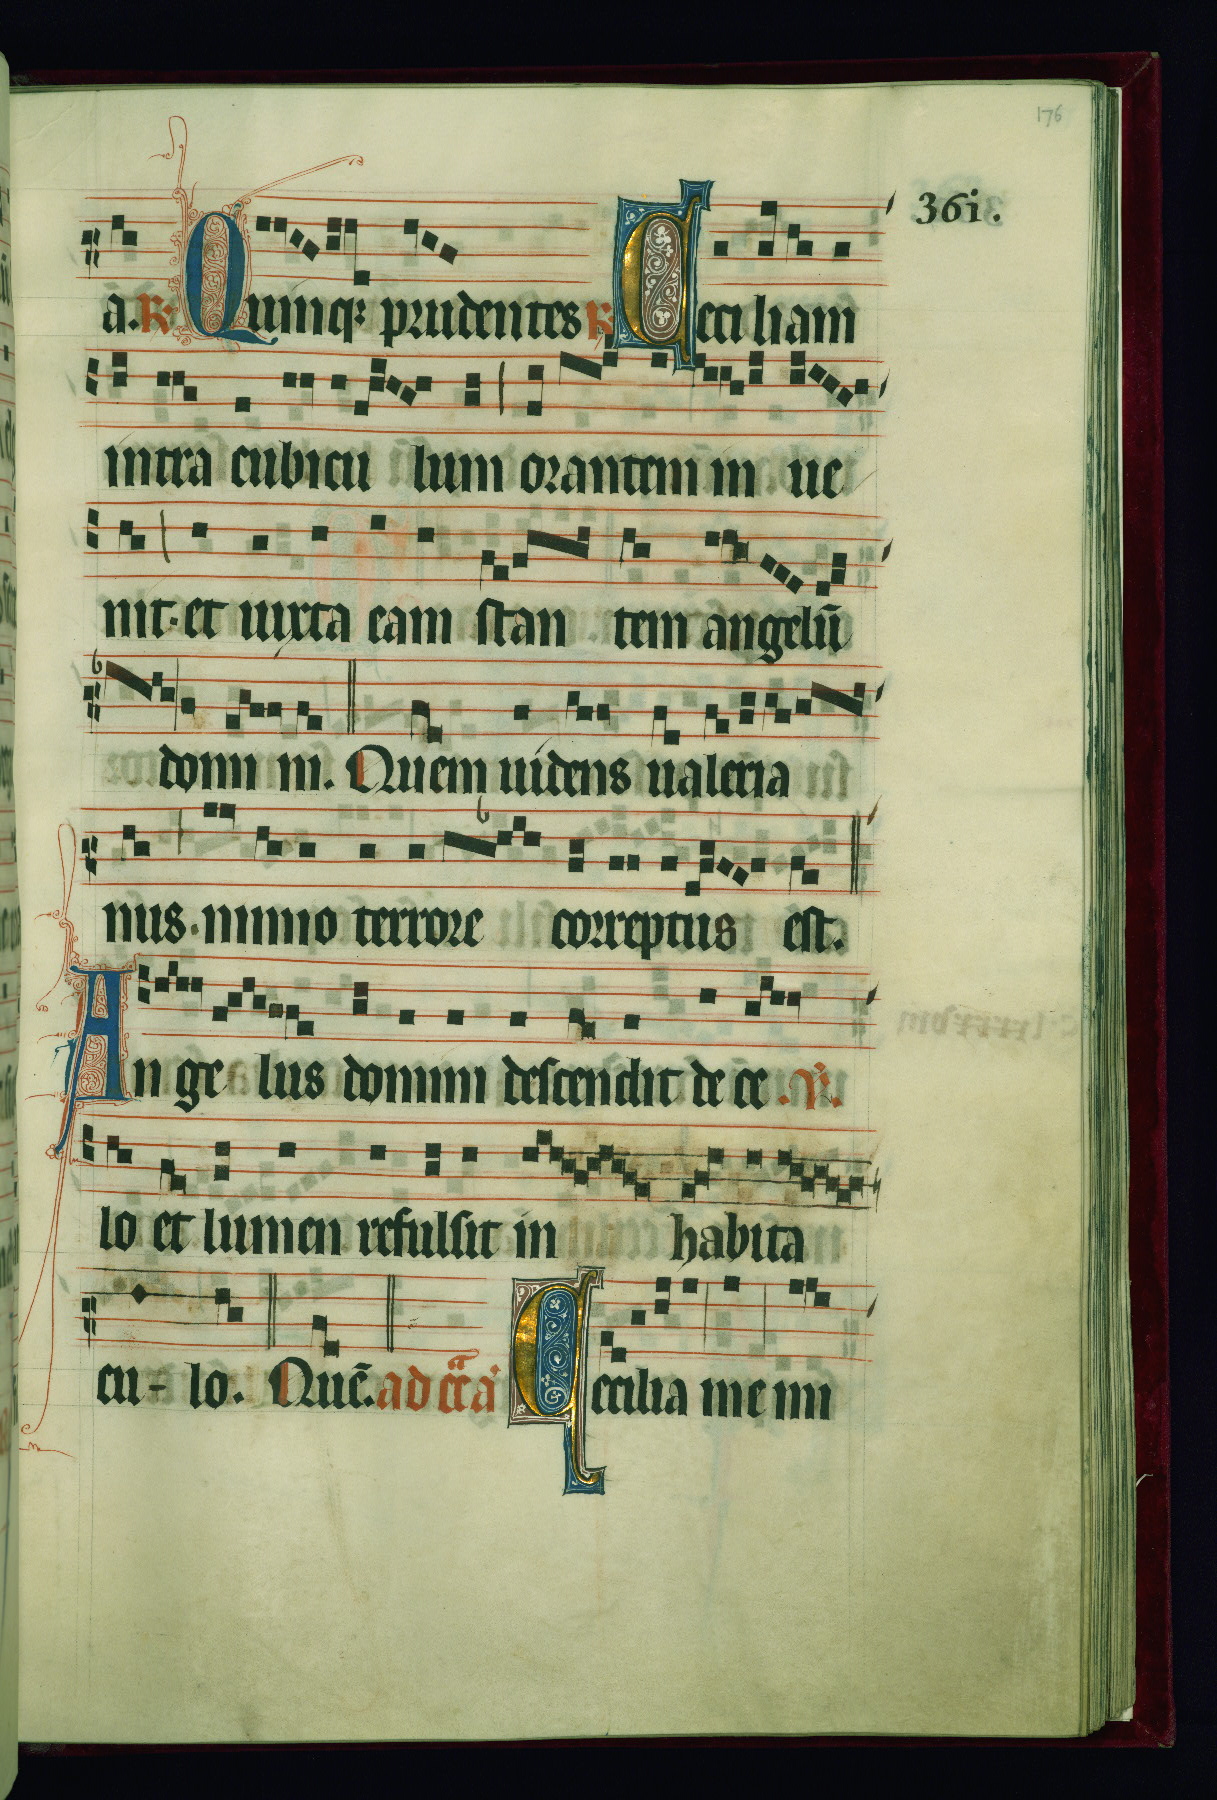 176
36i.
a. R. Quinq; prudentes R. Ceciliam
intra cubicu lum orantem in ue
nit. et iuxta eam stan tem angelū
domi ni. Quem uidens ualeria
nus. nimio terrore correptus est.
An ge lus domini descendit de ce .V.
lo et lumen refulsit in habita
cu - lo. Quē. ad Cecilia me mi